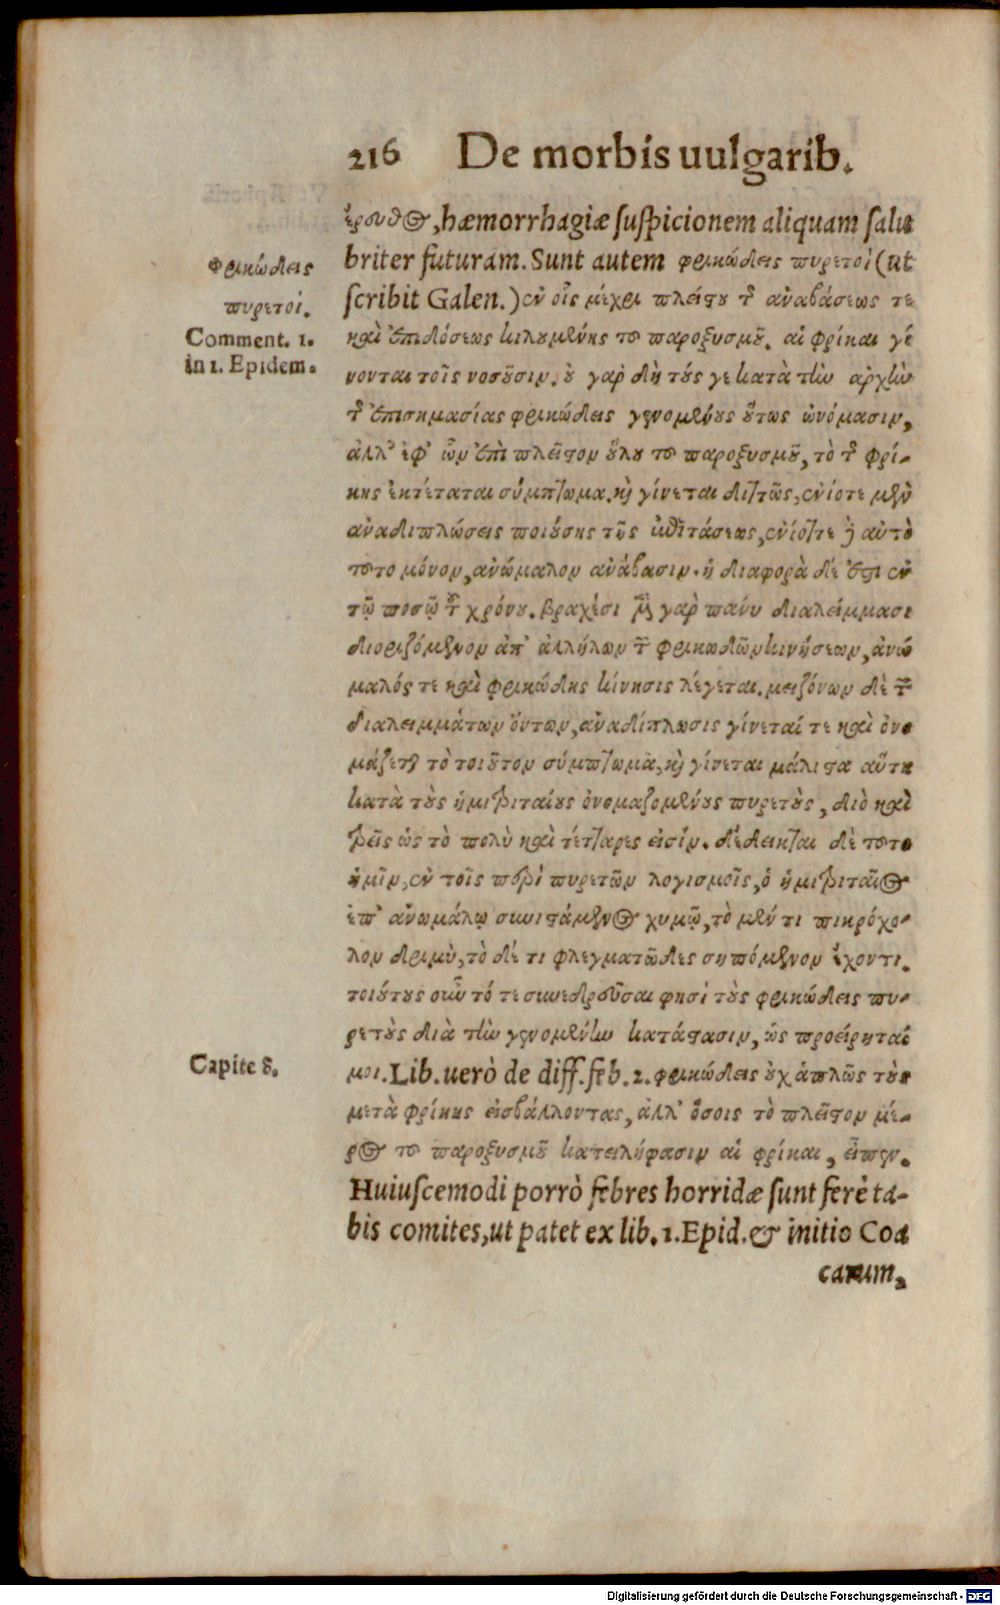 216 De morbis uulgarib.
ἔρευθος, hæmorrhagiæ suspicionem aliquam salu
briter futuram. Sunt autem φρικώδεις πυρετοὶ (ut
scribit Galen.) ἐν οἷς μέχρι πλείστου τῆς ἀναβάσεως τε
καὶ ἐπιδόσεως κιλουμένης τοῦ παροξυσμοῦ. αἱ φρίκαι γί
νονται τοῖς νοσοῦσιν. οὐ γαρ δὴ τούς γε κατὰ τὴν αρχὴν
τῆς ἐπισημασίας φρικώδεις γενομένους οὕτως ὠνόμασιν,
ἀλλ' ἐφ' ὧν ἐπὶ πλεῖστον ὅλου τοῦ παροξυσμοῦ, τὸ τῆς φρί-
κης ἐκτέταται σύμπτωμα. καὶ γίνεται διττῶς, ἐνίοτε μὲν
ἀναδιπλώσεις ποιούσης τῆς ἐπιτάσεως, ἐνίοτε δὲ αὐτὸ
τοῦτο μόνον, ἀνώμαλον ἀνάβασιν. ἡ διαφορὰ δέ ἐστι ἐν
τῷ ποσῷ τοῦ χρόνου. βραχέσι μὲν γαρ πάνυ διαλείμμασι
διοριζόμενον ἀπ' ἀλλήλων τῶν φρικωδῶν κινήσεων, ἀνώ
μαλός τε καὶ φρικώδης κίνησις λέγεται. μειζόνων δὲ τῶν
διαλειμμάτων ὄντων, ἀναδίπλωσις γίνεταί τε καὶ ὀνο
μάζεται τὸ τοιοῦτον σύμπτωμα, καὶ γίνεται μάλιστα αὕτη
κατὰ τοὺς ἡμιτριταίους ὀνομαζομένους πυρετοὺς, διὸ καὶ
τρεῖς ὡς τὸ πολὺ καὶ τέτταρες εἰσίν. δέδεικται δὲ τοῦτο
ἡμῖν, ἐν τοῖς περὶ πυρετῶν λογισμοῖς, ὁ ἡμιτριταῖος
ἐπ' ἀνωμάλῳ συνιστάμενος χυμῷ, τὸ μέν τι πικρόχο-
λον δριμὺ, τὸ δέ τι φλεγματῶδες σηπόμενον ἔχοντι.
τοιούτους οὖν τό τε συνεδρεῦσαι φησὶ τοὺς φρικώδεις πυ-
ρετοὺς διὰ τὴν γενομένην κατάστασιν, ὡς προείρηταί
μοι. Lib. uerò de diff. feb. 2. φρικώδεις οὐχ ἁπλῶς τοὺς
μετὰ φρίκης εἰσβάλλοντας, ἀλλ' ὅσοις τὸ πλεῖστον μέ-
ρος τοῦ παροξυσμοῦ κατειλήφασιν αἱ φρίκαι, εἶπεν.
Huiuscemodi porrò febres horridæ sunt ferè ta-
bis comites, ut patet ex lib. 1. Epid. & initio Coa
carum.
Φρικώδεις
πυρετοί.
Comment. 1.
in 1. Epidem.
Capite 8.
Digitalisierung gefördert durch die Deutsche Forschungsgemeinschaft - DFG